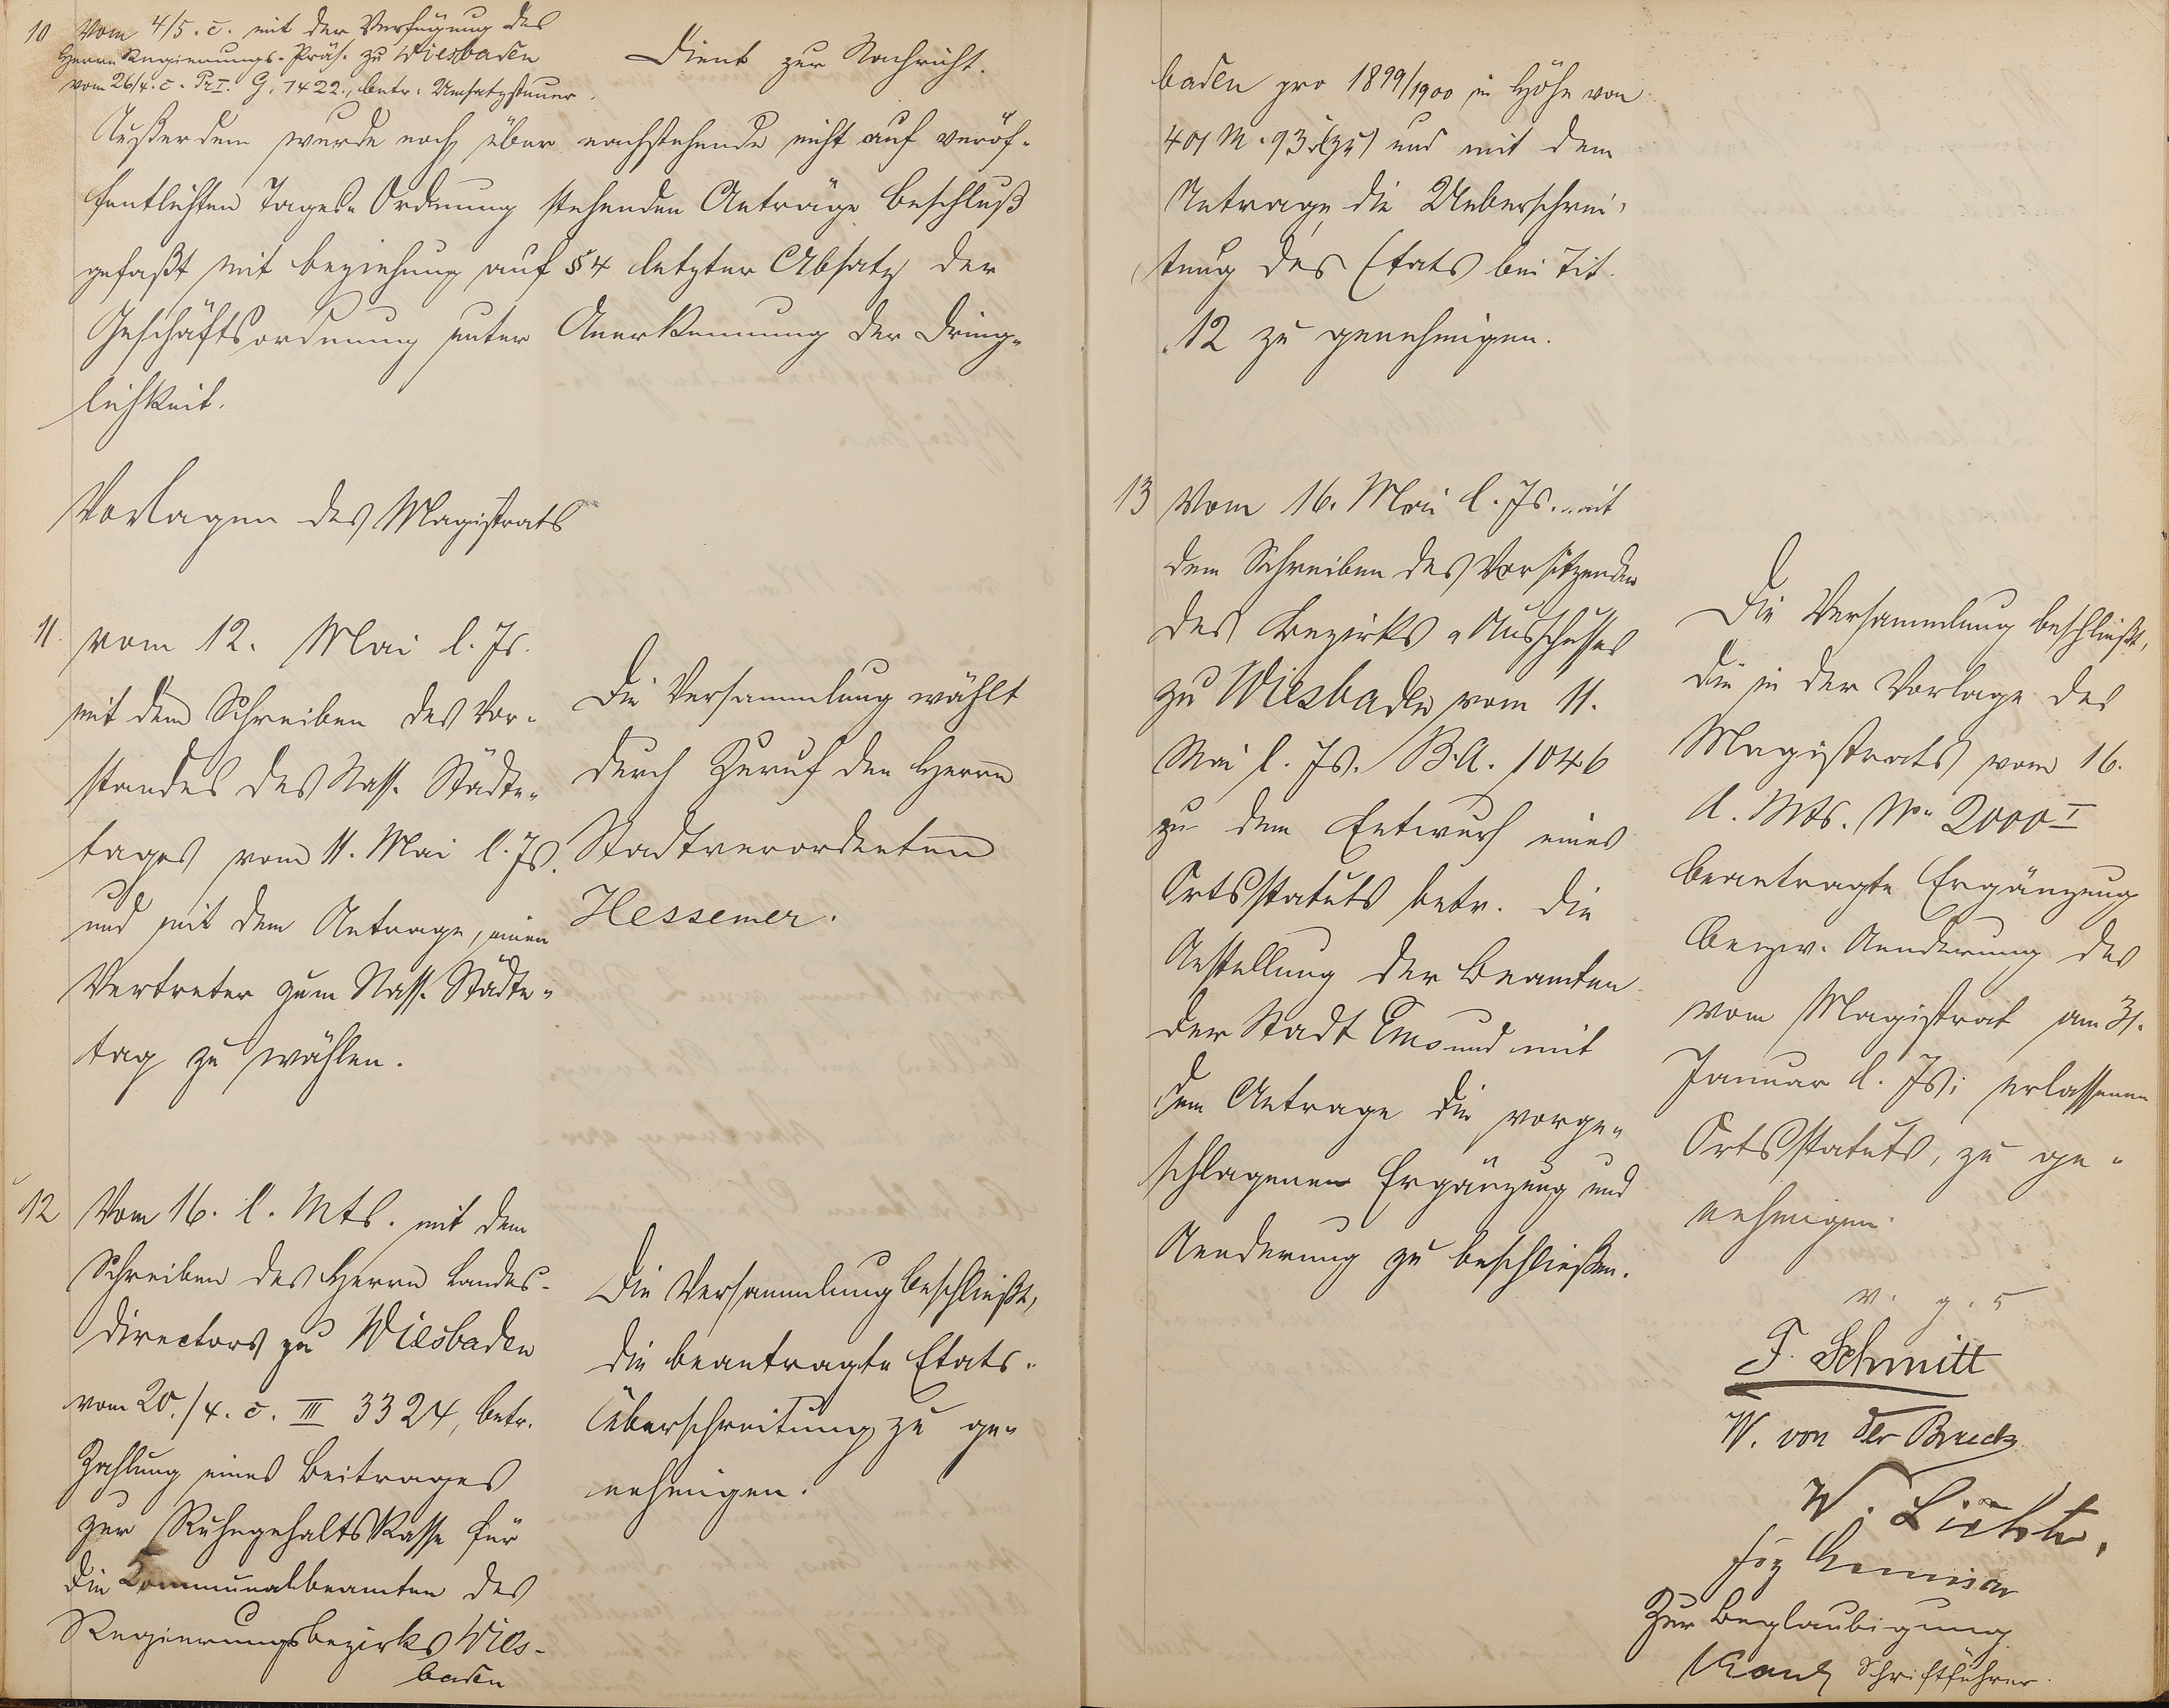 10 Vom 4/5. c. mit der Verfügung des
Herrn Regierungs-Präs. zu Wiesbaden
vom 26/4. c. Pr. I. G. 1422., betr. Umsatzsteuer.
Dient zur Nachricht.
Außerdem wurde noch über nachstehende nicht auf veröf-
fentlichten Tages-Ordnung stehenden Anträge Beschluß
gefaßt mit Beziehung auf § 4 letzter Absatz der
Geschäftsordnung unter Anerkennung der Dring-
lichkeit.
Vorlagen des Magistrats
11. vom 12. Mai l. Js.
mit dem Schreiben des Vor-
standes des Nass. Städte-
tages vom 11. Mai l. Js.
und mit dem Antrage, einen
Vertreter zum Nass. Städte-
tag zu wählen.
Die Versammlung wählt
durch Zuruf den Herrn
Stadtverordneten
Hessemer.
12 Vom 16. l. Mts. mit dem
Schreiben des Herrn Landes-
directors zu Wiesbaden
vom 20./4. c. III 3324, betr.
Zahlung eines Beitrages
zur Ruhegehaltskasse für
die Communalbeamten des
Regierungsbezirks Wies-
baden
Die Versammlung beschließt,
die beantragte Etats-
überschreitung zu ge-
nehmigen.
baden pro 1899/1900 in Höhe von
401 M. 93 und mit dem
Antrage, die Ueberschrei-
tung des Etats bei Tit.
12 zu genehmigen.
13 Vom 16. Mai l. Js. mit
dem Schreiben des Vorsitzenden
des Bezirks-Ausschusses
zu Wiesbaden vom 11.
Mai l. Js. B.A. 1046
zu dem Entwurf eines
Ortsstatuts betr. die
Anstellung der Beamten
der Stadt Ems und mit
dem Antrage die vorge-
schlagenen Ergänzung und
Aenderung zu beschließen.
Die Versammlung beschließt,
die in der Vorlage des
Magistrats vom 16.
d. Mts. No 2000 I
beantragte Ergänzung
bezw. Aenderung des
vom Magistrat am 31.
Januar l. Js. erlassenen
Ortsstatuts, zu ge-
nehmigen.
v. g. u.
F. Schmitt
W. von der Brück
W.
Zur Beglaubigung
Schriftführer.